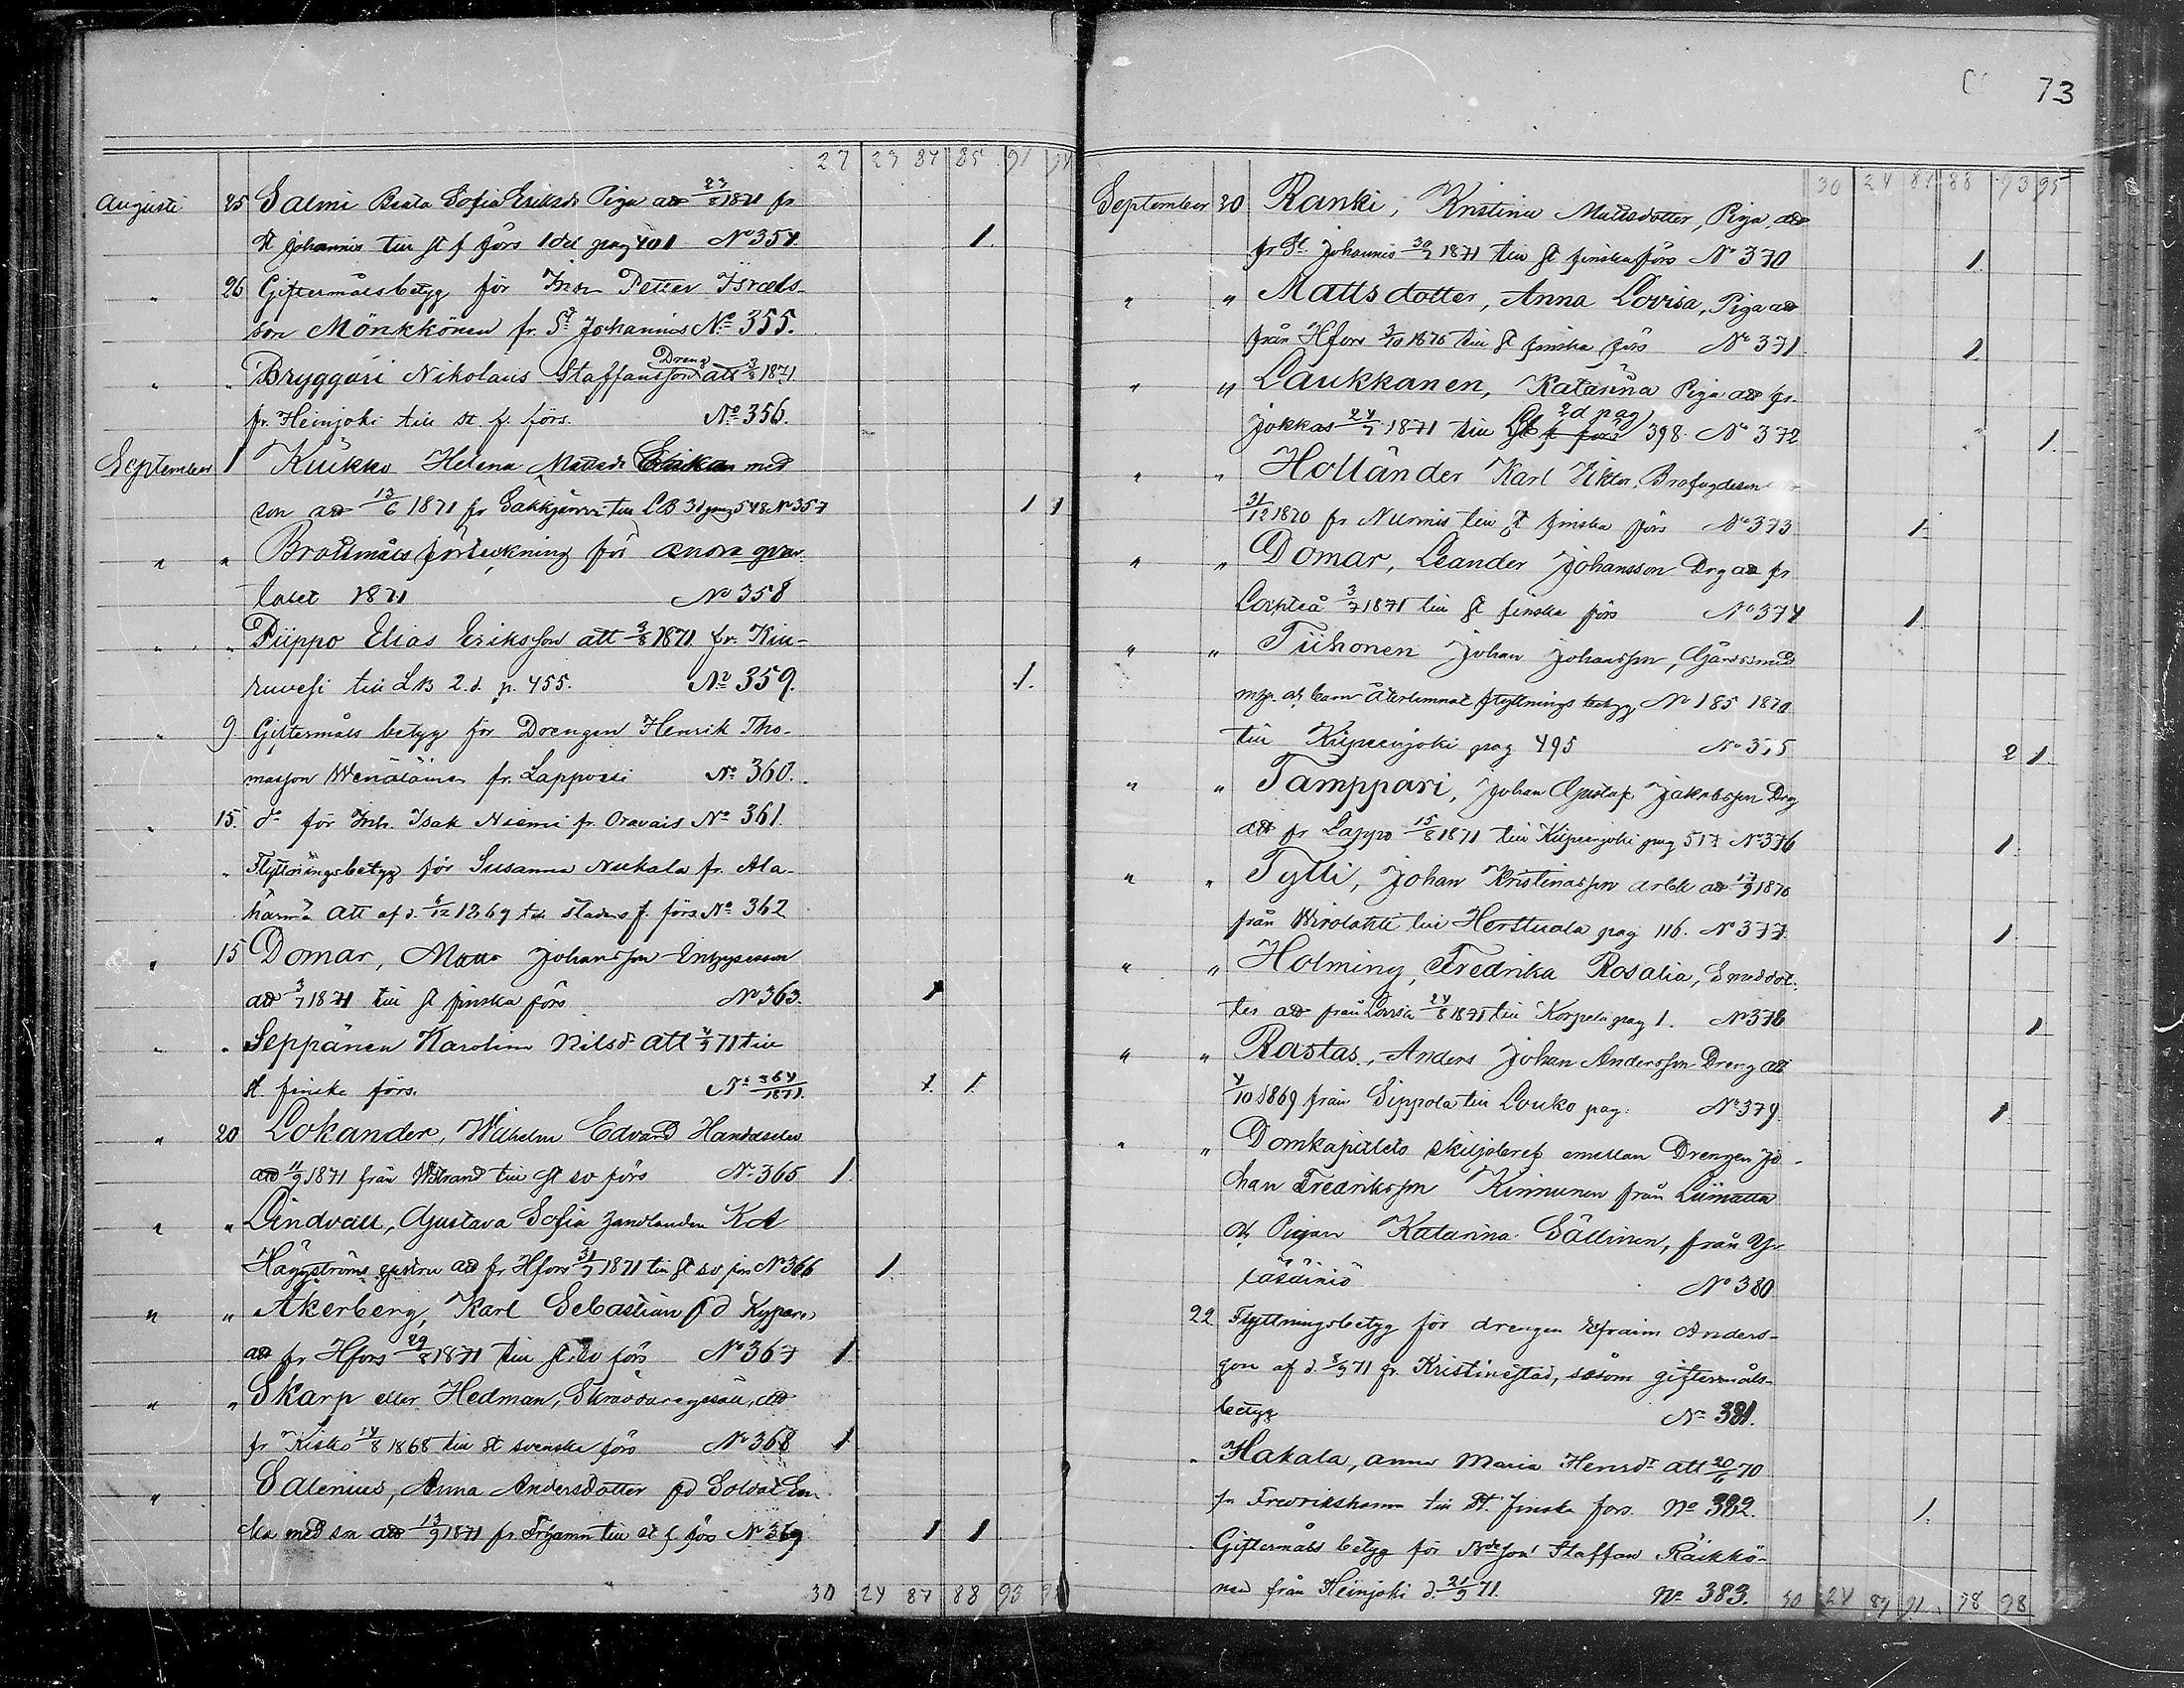 27 23 87 85 91 94
Augusti 25 Salmi Beata Sofia Eriksdr Piga att 23/8 1871 fr
St Johannis till st f förs 1 del pag 401 No 354. 1.
" 26 Giftermålsbetyg för Inh. Petter Israels-
son Mönkkönen fr. St Johannis No 355.
Dreng
" " Bryggäri Nikolaus Staffansson att 3/8 1871
fr. Heinjoki till st. f. förs. No 356.
September 1 Kiukko Helena Mattsdr med
son att 13/6 1871 fr Säkkjärvi till LB 3d pag 548 No 357 1 1
" " Brottmåls förteckning för andra qvar-
talet 1871 No 358
" " Piippo Elias Eriksson att 3/8 1871 fr. Kiu-
ruvesi till LB 2. d. p. 455. No 359. 1.
" 9 Giftermåls betyg för Drengen Henrik Tho-
masson Wenäläinen fr. No 360.
" 15. do för Inh. Isak Niemi fr. Oravais No 361.
" Flyttningsbetyg för Susanna Nukala fr. Ala-
härmä att af d. 6/12 1869 till stadens f. förs No 362
" 15 Domar, Matts Johansson
att 3/7 1871 till st finska förs No 363. 1
" " Seppänen Karolina Nilsdr att 4/9 71 till
st. finska förs. No 364/1871. 1. 1.
" 20 Lokander, Wilhelm Edvard
att 11/9 1871 från Wstrand till st sv förs No 365 1.
" " Lindvall, Gustava Sofia K A
Häggströms hustru att fr Hfors 31/7 1871 till st sv förs No 366 1.
" " Åkerberg, Karl Sebastian fd Kypare
att fr Hfors 29/8 1871 till st sv förs No 367 1.
" " Skarp eller Hedman, att
fr Kisko 14/8 1868 till st svenska förs No 368 1
" Salenius, Anna Andersdotter fd Soldat En-
ka med son att 13/9 1871 fr till st f förs No 369 1 1
30 24 87 88 93
73
30 24 87 88 93 95
September 20 Ranki, Kristina Mattsdotter, Piga, att
fr St. Johannis 30/7 1871 till st finska förs No 370 1.
" " Mattsdotter, Anna Lovisa, Piga att
från Hfors 3/10 1870 till st finska förs No 371 1.
" " Laukkanen, Katarina Piga att fr.
2d pag
Jokkas 24/7 1871 till 398. No 372 1.
" " Holländer Karl Viktor,
31/12 1870 fr Nurmis till st finska förs No 373 1.
" " Domar, Leander Johansson Drg att fr
Lochteå 3/7 1871 till st finska förs No 374 1.
" " Tiihonen Johan Johansson, Gårdssmed
m. h. och barn återlemnat flyttnings betyg No 185 1870
till Kilpeenjoki pag 495 No 375 2 1.
" " Tamppari, Johan Gustaf Jakobsson Drg
att fr Lappo 15/8 1871 till Kilpeenjoki pag 517 No 376 1.
" " Tylli, Johan Kristinasson arbk att 17/9 1870
från Wirolahti till Herttuala pag 116. No 377. 1.
" " Holming, Fredrika Rosalia, Smeddot-
ter att från Lovisa 24/8 1871 till Korpela pag 1. No 378 1
" " Rastas, Anders Johan Andersson Dreng att
4/10 1869 från Sippola till Louko pag: No 379. 1.
" " Domkapitlets skiljobref emellan Drengen Jo-
han Fredriksson Kinnunen från Liimatta
och Pigan Katarina Sällinen, från Y-
No 380
22 Flyttningsbetyg för drengen Efraim Anders-
son af d. 8/9 71 fr. Kristinestad, såsom giftermåls-
betyg No 381.
" Hakala, Anna Maria Henrsdr att 20/6 70
fr Fredrikshamn till St. finska förs. No 382. 1.
Giftermåls betyg för Bdeson Staffan Räikkö-
nen från Heinjoki d. 21/9 71. No 383. 30 24 89 91 98 98